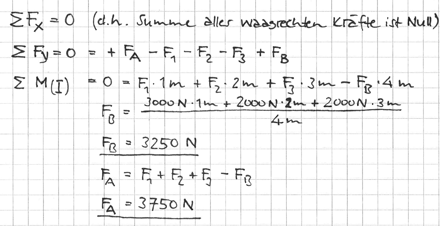 ΣFx = 0 (d.h. Summe aller waagrechten Kräfte ist Null)
ΣFy = 0 = + FA − F1 − F2 − F3 + FB
ΣM(I) = 0 = F1 · 1m + F2 · 2m + F3 · 3m − FB · 4m
FB = (3000N · 1m + 2000N · 2m + 2000N · 3m) / 4m
FB = 3250 N
FA = F1 + F2 + F3 − FB
FA = 3750 N